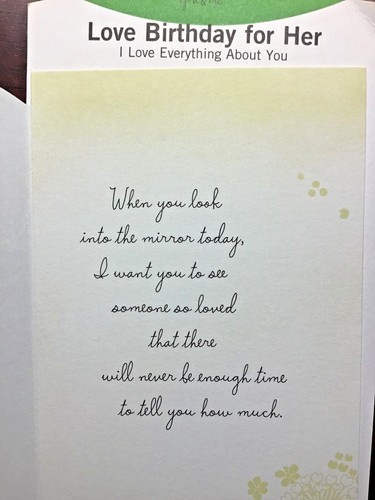 Love Birthday for Her
I Love Everything About You
When you look
into the mirror today,
I want you to see
someone so loved
that there
will never be enough time
to tell you how much.